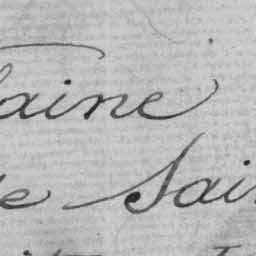 aine
e Sai